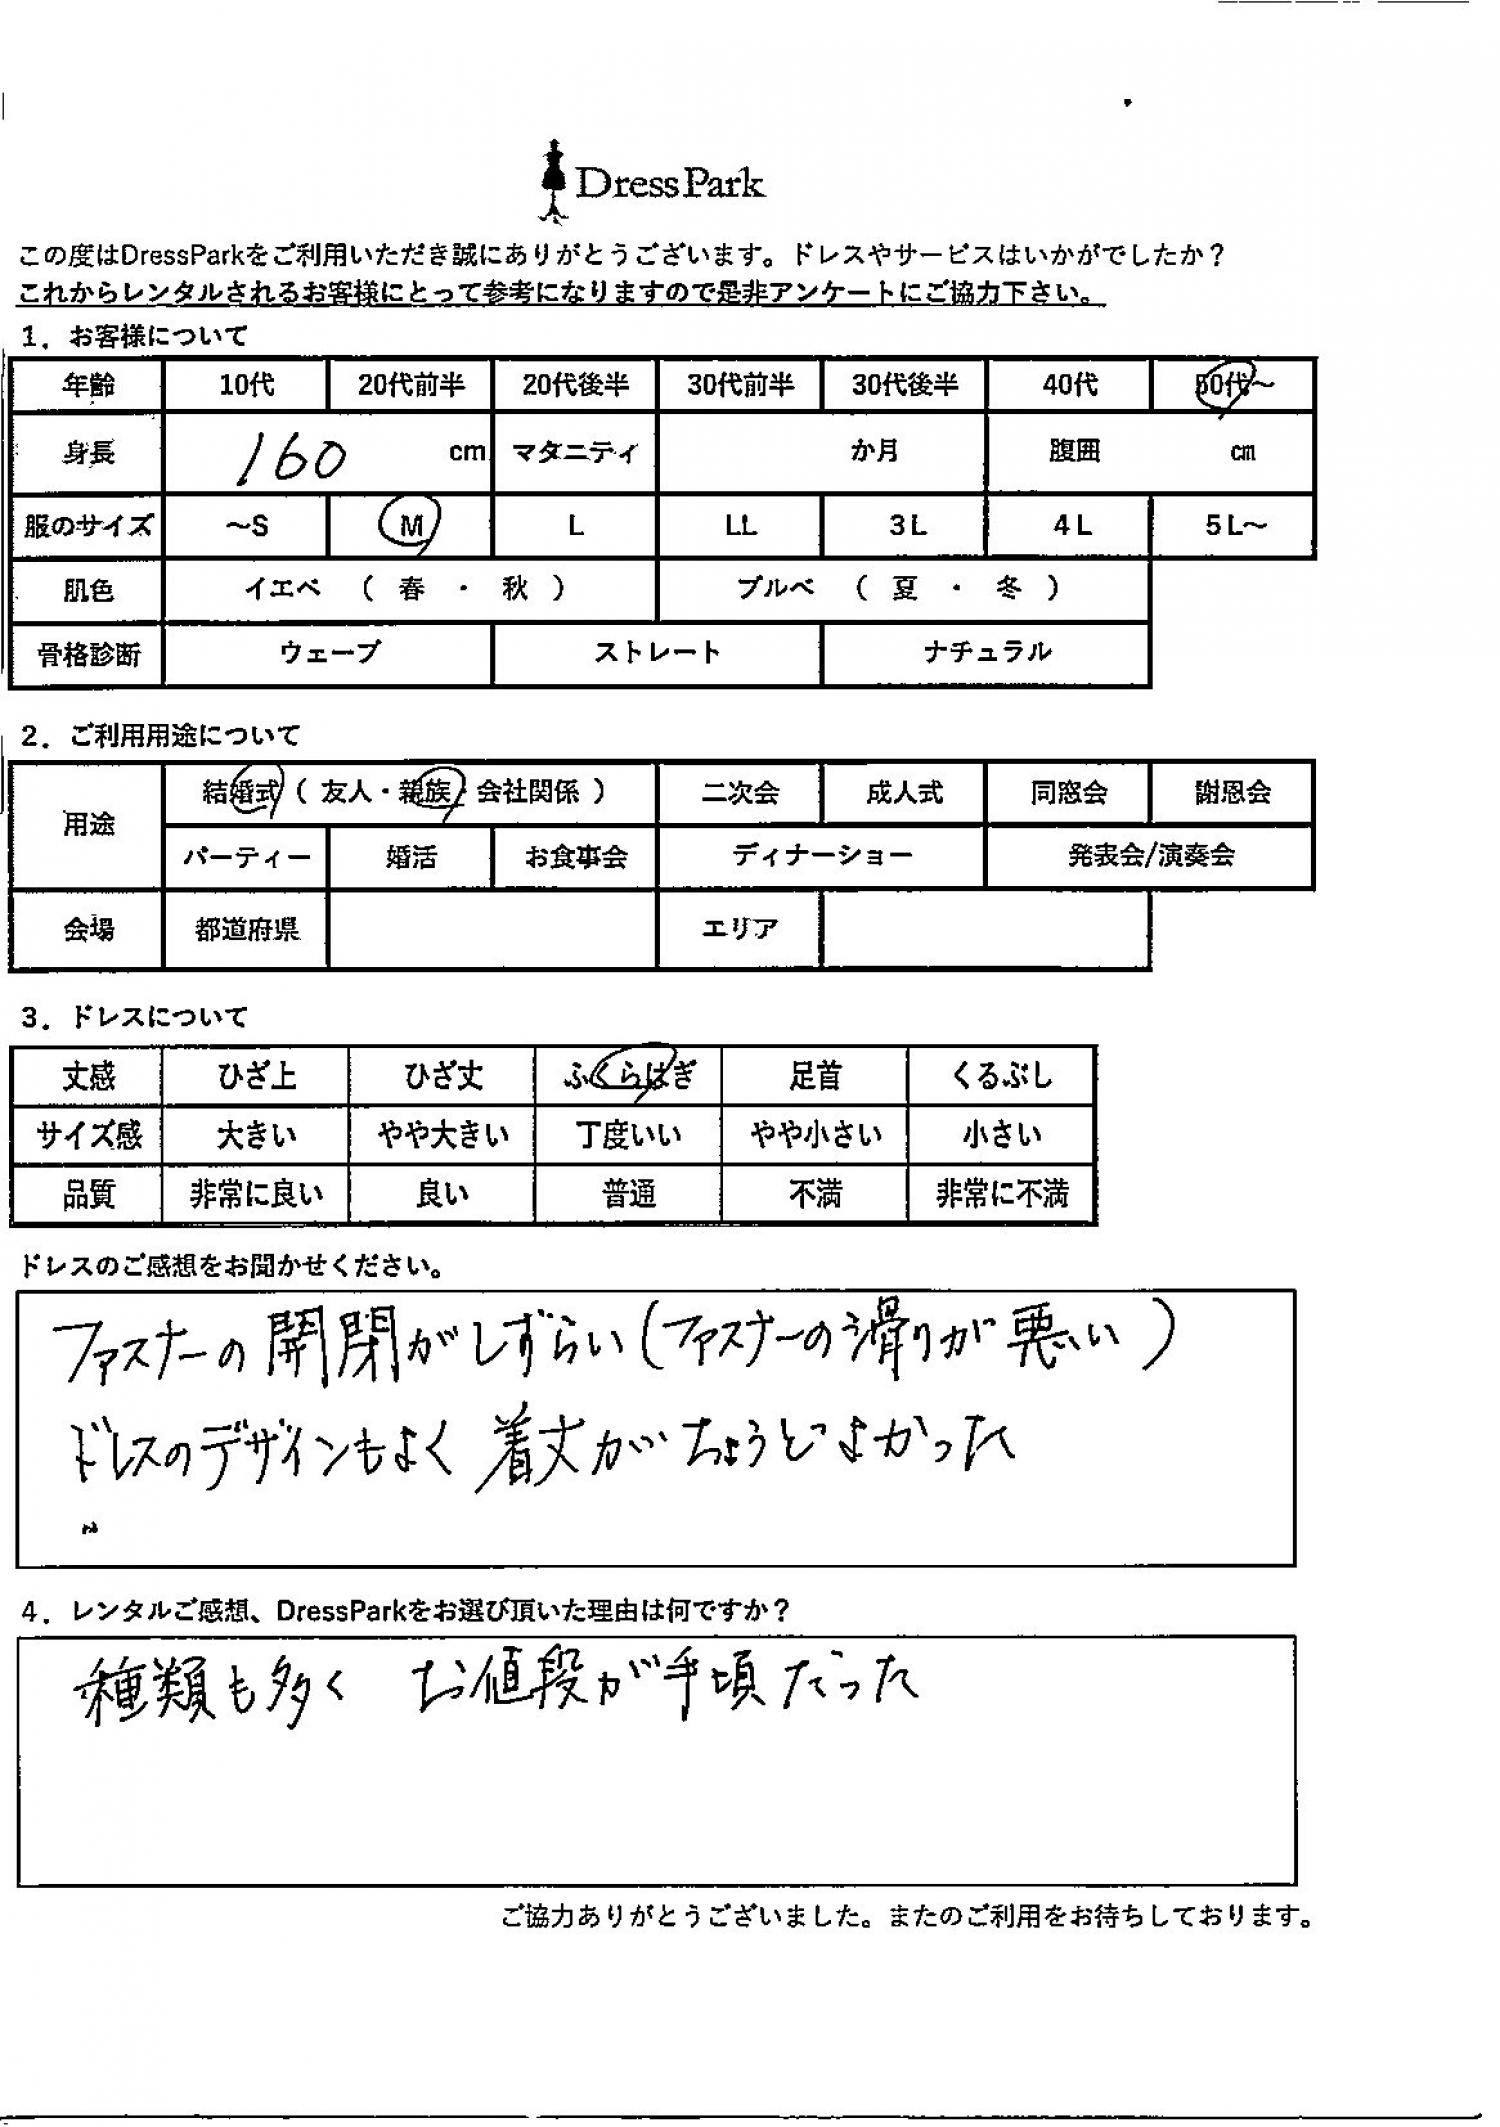 DressPark
この度はDressParkをご利用いただき誠にありがとうございます。ドレスやサービスはいかがでしたか？
これからレンタルされるお客様にとって参考になりますので是非アンケートにご協力下さい。
1．お客様について
年齢 10代 20代前半 20代後半 30代前半 30代後半 40代 50代～
身長 160 cm マタニティ か月 腹囲 cm
服のサイズ ～S M L LL 3L 4L 5L～
肌色 イエベ （ 春 ・ 秋 ） ブルベ （ 夏 ・ 冬 ）
骨格診断 ウェーブ ストレート ナチュラル
2．ご利用用途について
用途 結婚式（ 友人・親族・会社関係 ） 二次会 成人式 同窓会 謝恩会
パーティー 婚活 お食事会 ディナーショー 発表会/演奏会
会場 都道府県 エリア
3．ドレスについて
丈感 ひざ上 ひざ丈 ふくらはぎ 足首 くるぶし
サイズ感 大きい やや大きい 丁度いい やや小さい 小さい
品質 非常に良い 良い 普通 不満 非常に不満
ドレスのご感想をお聞かせください。
ファスナーの開閉がしずらい（ファスナーの滑りが悪い）
ドレスのデザインもよく着丈がちょうどよかった
4．レンタルご感想、DressParkをお選び頂いた理由は何ですか？
種類も多く お値段が手頃だった
ご協力ありがとうございました。またのご利用をお待ちしております。